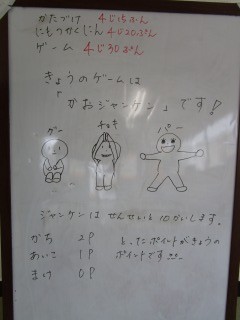 かたづけ 4じ15ふん
にもつかくにん 4じ20ぷん
ゲーム 4じ30ぷん
きょうのゲームは
「かおジャンケン」です!
グー チョキ パー
ジャンケンはせんせいと10かいします。
かち 2P
あいこ 1P
まけ 0P
とったポイントがきょうの
ポイントです